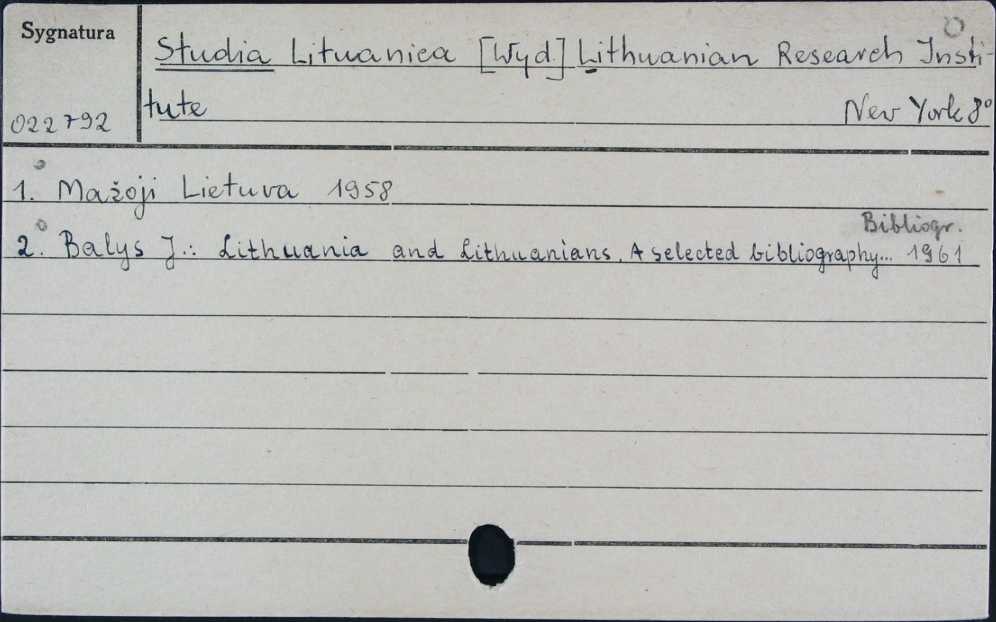 Sygnatura
Studia Lituanica [Wyd.] Lithuanian Research Insti-
tute New York 8°
022792
1. Mažoji Lietuva 1958
Bibliogr.
2. Balys J.: Lithuania and Lithuanians. A selected bibliography... 1961